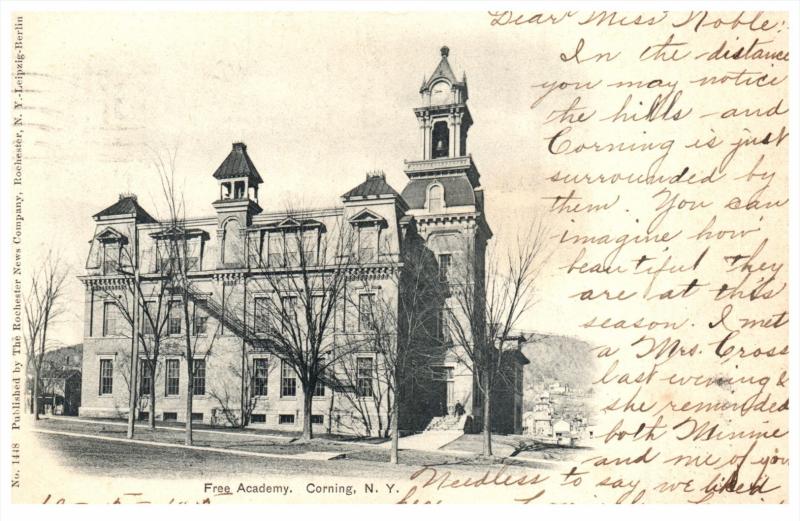 No. 1448 Published by The Rochester News Company, Rochester, N. Y.-Leipzig-Berlin
Dear Miss Noble:
In the distance
you may notice
the hills and
Corning is just
surrounded by
them. You can
imagine how
beautiful they
are at this
season. I met
a Mrs. Cross
last evening &
she reminded
both Minnie
and me of you
Needless to say we liked
her
Free Academy. Corning, N. Y.